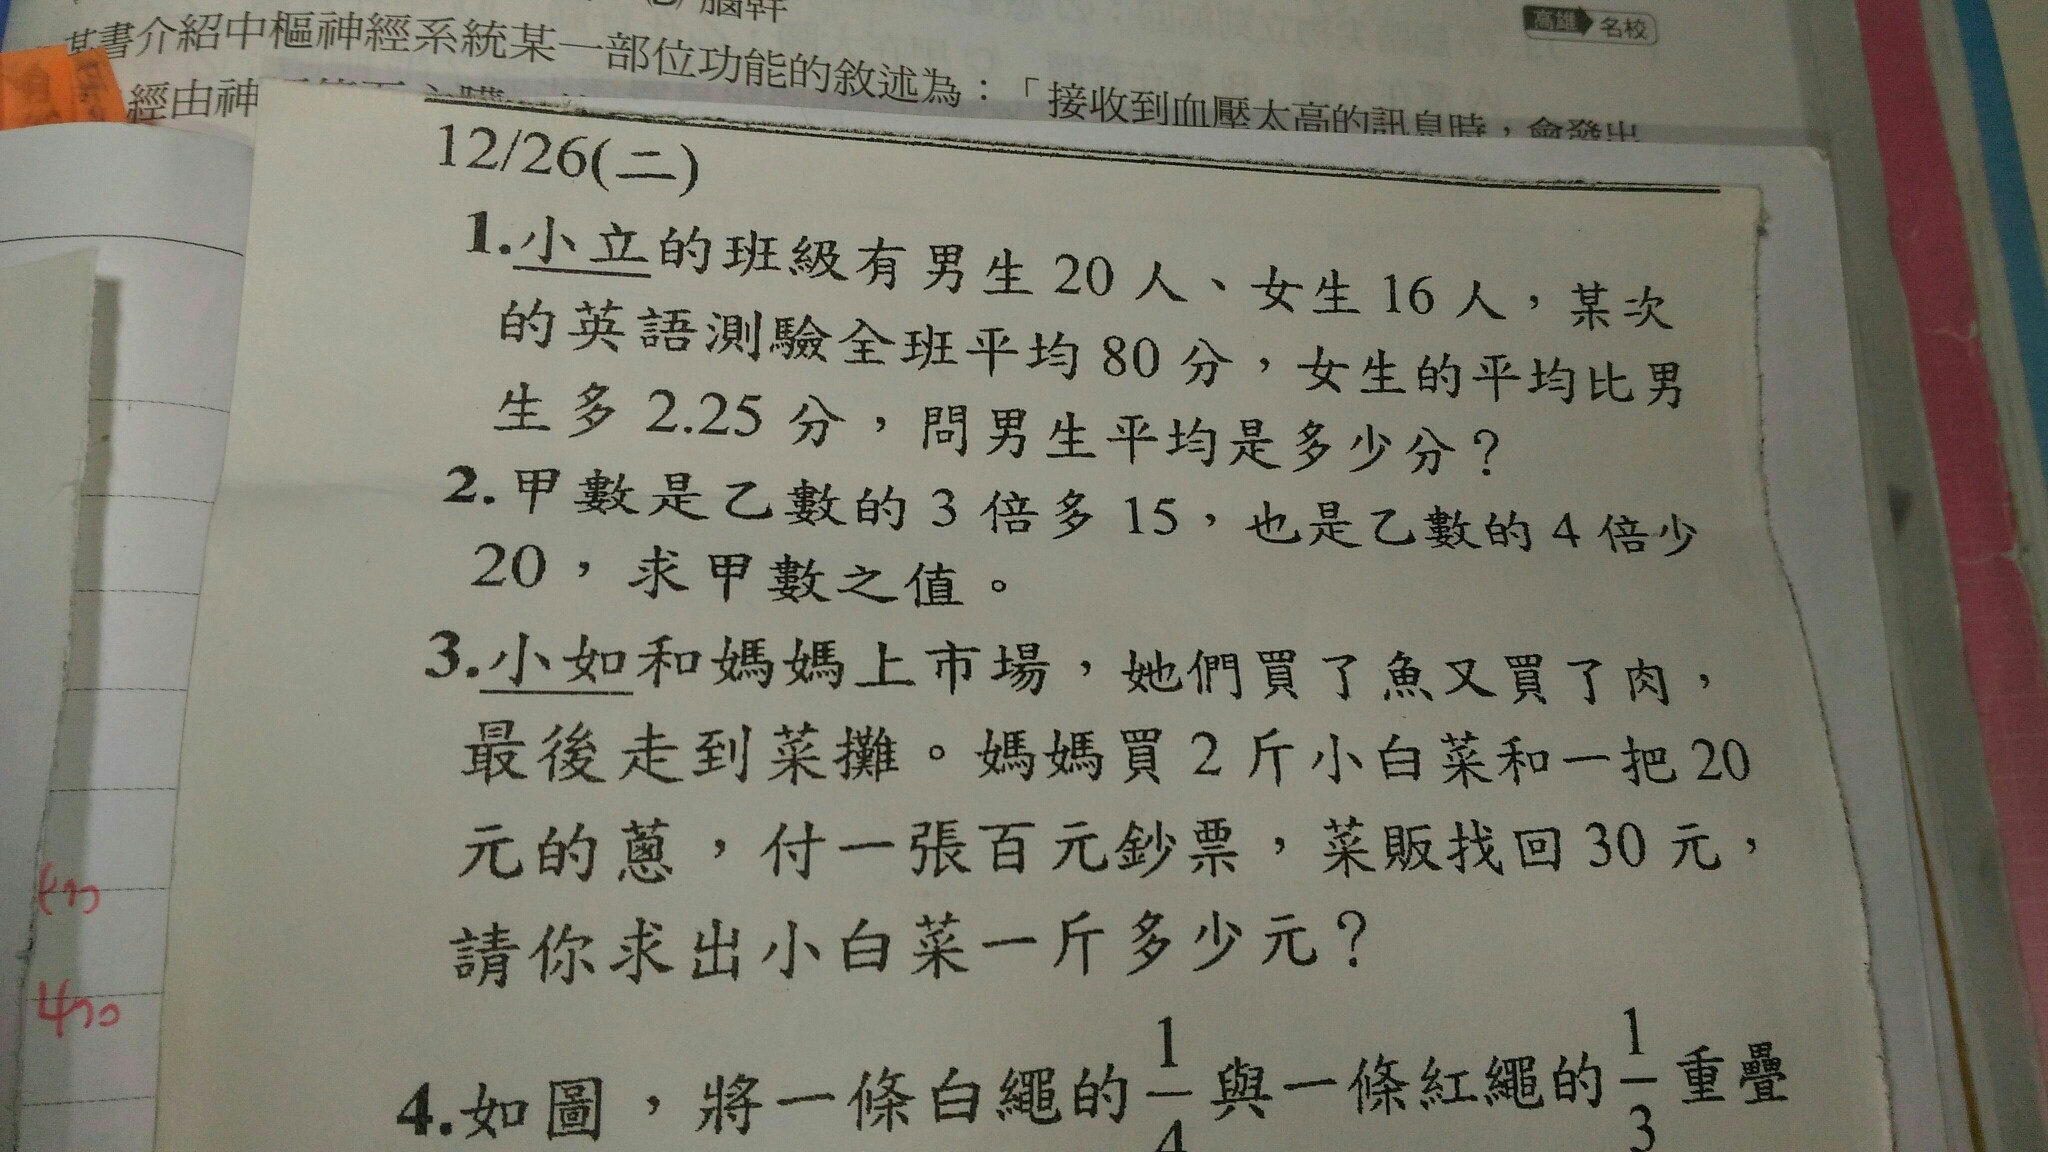 腦幹
高雄 名校
某書介紹中樞神經系統某一部位功能的敘述為：「接收到血壓太高的訊息時，會發出
經由神
12/26(二)
1.小立的班級有男生20人、女生16人，某次
的英語測驗全班平均80分，女生的平均比男
生多2.25分，問男生平均是多少分？
2.甲數是乙數的3倍多15，也是乙數的4倍少
20，求甲數之值。
3.小如和媽媽上市場，她們買了魚又買了肉，
最後走到菜攤。媽媽買2斤小白菜和一把20
元的蔥，付一張百元鈔票，菜販找回30元，
請你求出小白菜一斤多少元？
4.如圖，將一條白繩的1/4與一條紅繩的1/3重疊